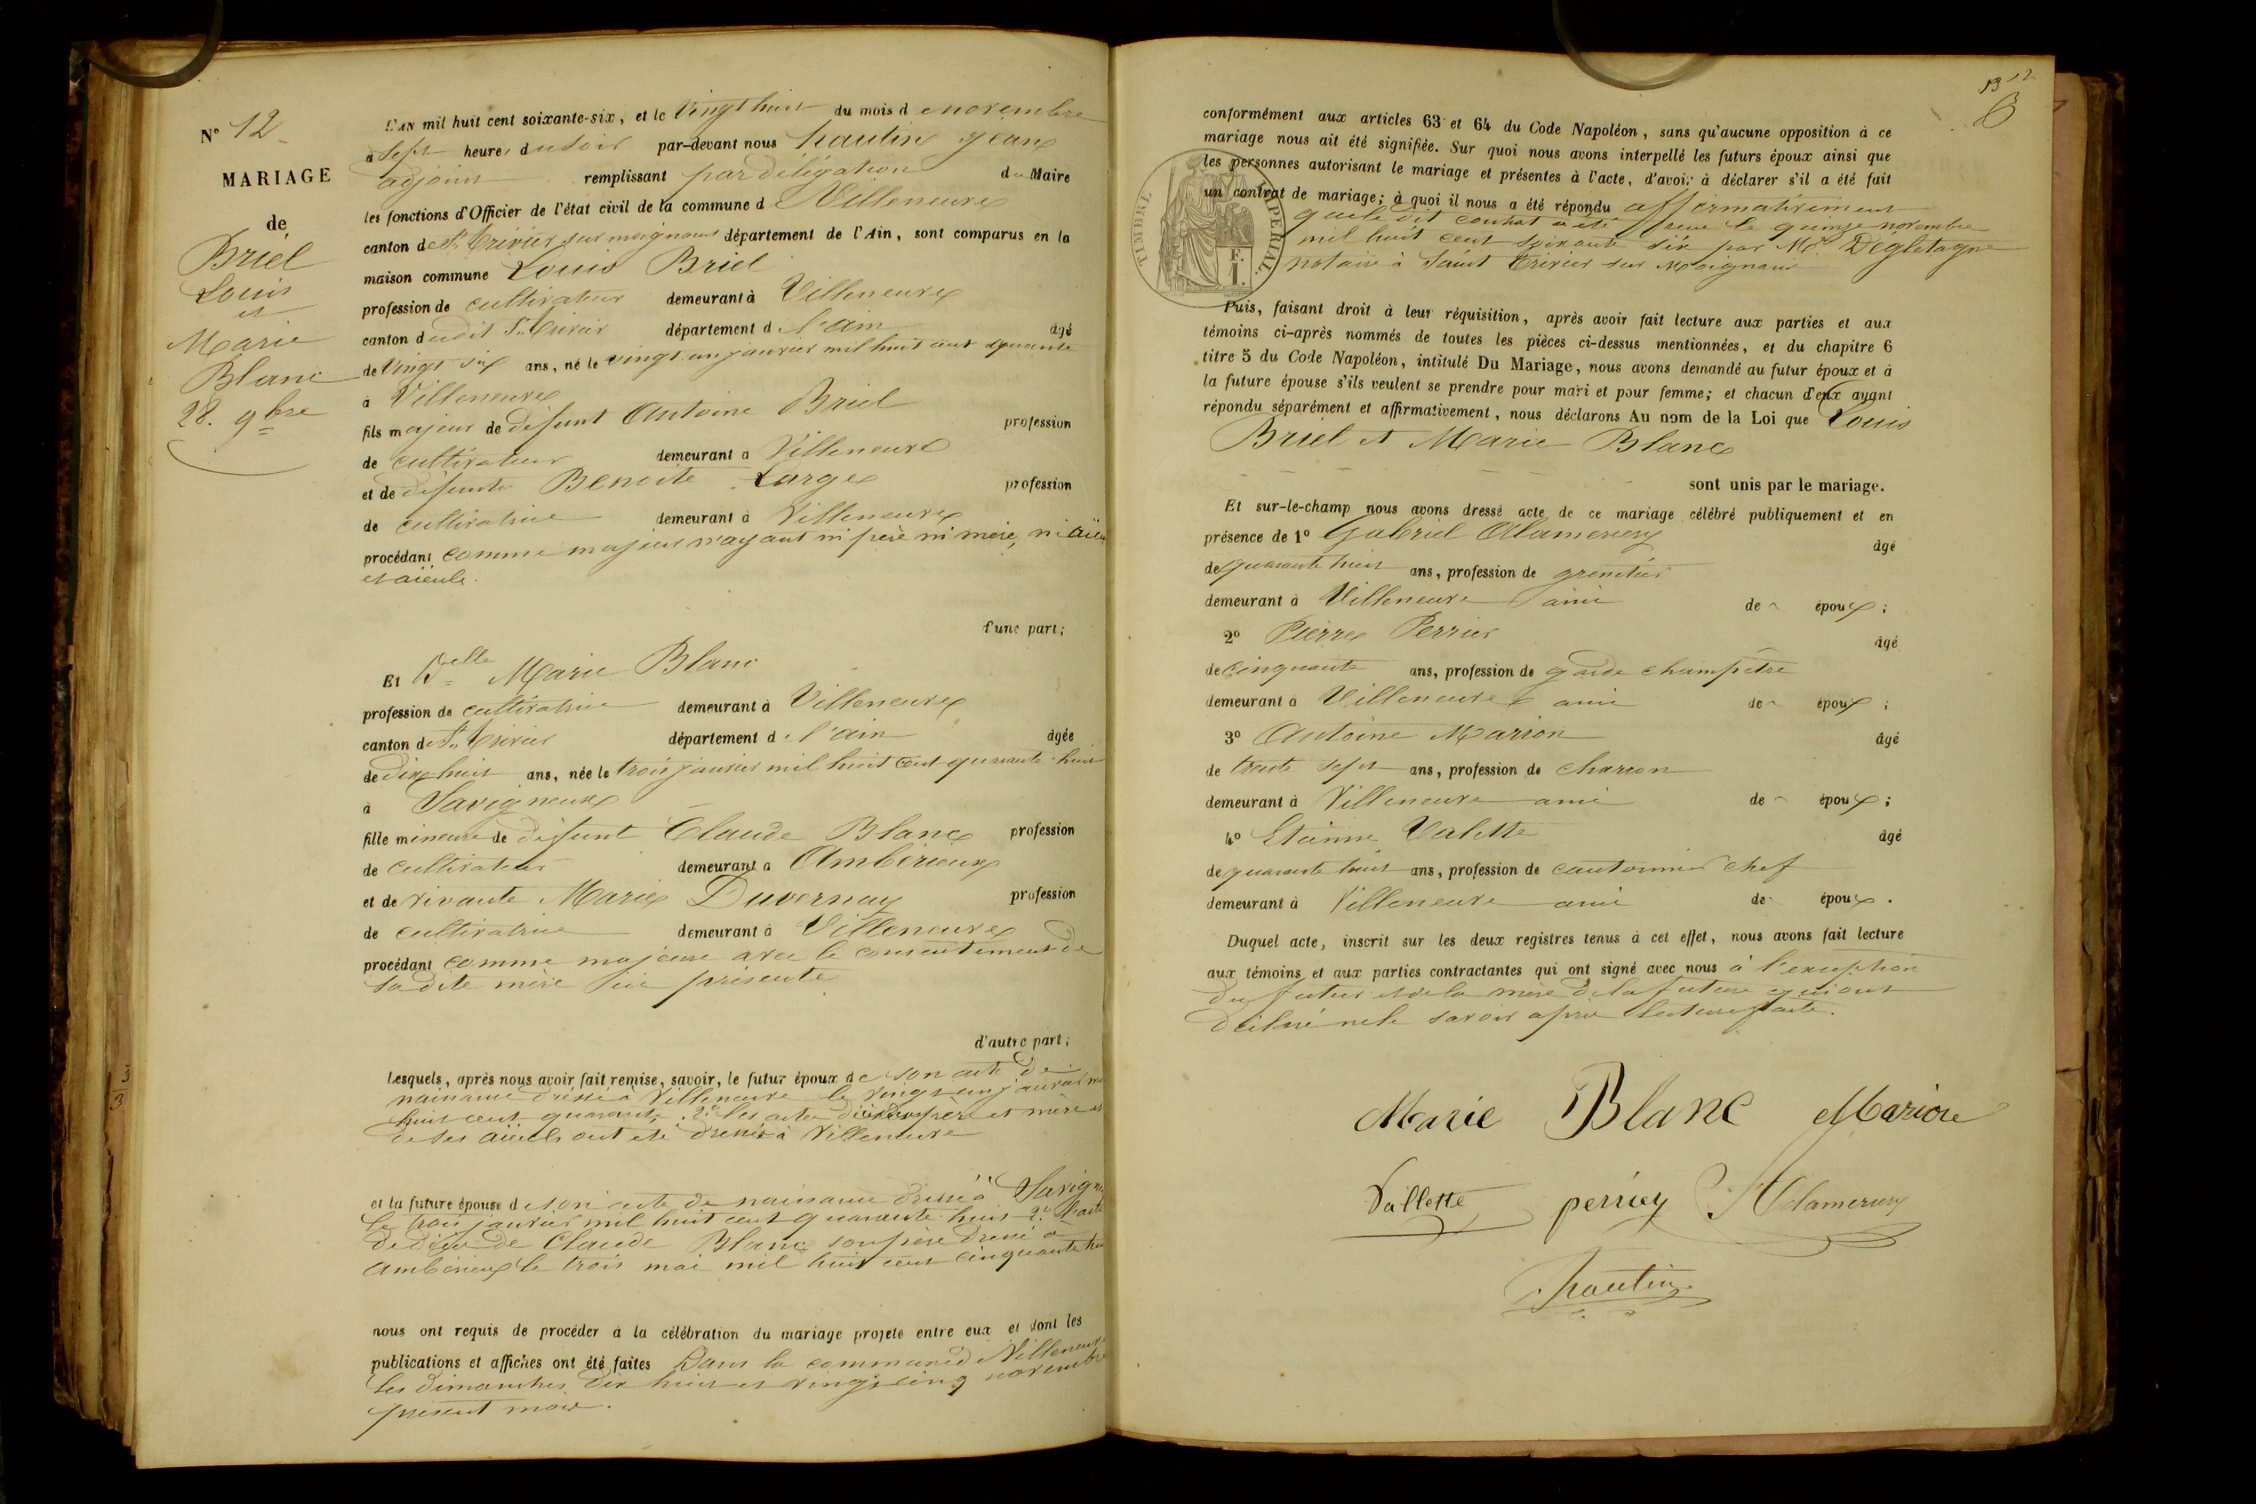 N° 12
MARIAGE
de
Briel
Louis
et
Marie
Blanc
28. 9bre
L'AN mil huit cent soixante-six, et le vingt huit du mois de novembre
à sept heures du soir par-devant nous hautin Jean
adjoint remplissant par délégation du Maire
les fonctions d'Officier de l'état civil de la commune d Villeneuve
canton de St. Trivier sur moignans département de l'Ain, sont comparus en la
maison commune Louis Briel
profession de cultivateur demeurant à Villeneuve
canton dudit St. Trivier département de l'ain âgé
de vingt six ans, né le vingt un janvier mil huit cent quarante
à Villeneuve
fils majeur de défunt Antoine Briel profession
de cultivateur demeurant à Villeneuve
et de défunte Benoite Large profession
de cultivatrice demeurant à Villeneuve
procédant comme majeur n'ayant ni père ni mère, ni aïeul
et aïeule.
d'une part;
Et Delle Marie Blanc
profession de cultivatrice demeurant à Villeneuve
canton de St. Trivier département de l'ain âgée
de dix huit ans, née le trois janvier mil huit cent quarante huit
à Savigneux
fille mineure de défunt Claude Blanc profession
de cultivateur demeurant à Ambérieux
et de vivante Marie Duvernay profession
de cultivatrice demeurant à Villeneuve
procédant comme majeure avec le consentement de
sa dite mère ici présente
d'autre part;
Lesquels, après nous avoir fait remise, savoir, le futur époux de son acte de
naissance dressé à Villeneuve le vingt un janvier mil
huit cent quarante, 2° les actes de décès des père et mère et
de ses aïeuls ont été dressés à Villeneuve
et la future épouse de son acte de naissance dressé à Savigneux
le trois janvier mil huit cent quarante huit 2° l'acte
de décès de Claude Blanc son père dressé à
ambérieux le trois mai mil huit cent cinquante
nous ont requis de procéder à la célébration du mariage projeté entre eux et dont les
publications et affiches ont été faites Dans la commune de Villeneuve
les dimanches dix huit et vingt cinq novembre
présent mois.
13 12
conformément aux articles 63 et 64 du Code Napoléon, sans qu'aucune opposition à ce
mariage nous ait été signifiée. Sur quoi nous avons interpellé les futurs époux ainsi que
les personnes autorisant le mariage et présentes à l'acte, d'avoir à déclarer s'il a été fait
un contrat de mariage; à quoi il nous a été répondu affirmativement
que le dit contrat a été passé le quinze novembre
mil huit cent soixante six par Me. Dégletagne
notaire à Saint Trivier sur Moignans
TIMBRE IMPERIAL
1 F.
Puis, faisant droit à leur réquisition, après avoir fait lecture aux parties et aux
témoins ci-après nommés de toutes les pièces ci-dessus mentionnées, et du chapitre 6
titre 5 du Code Napoléon, intitulé Du Mariage, nous avons demandé au futur époux et à
la future épouse s'ils veulent se prendre pour mari et pour femme; et chacun d'eux ayant
répondu séparément et affirmativement, nous déclarons Au nom de la Loi que Louis
Briel et Marie Blanc
sont unis par le mariage.
Et sur-le-champ nous avons dressé acte de ce mariage célébré publiquement et en
présence de 1° Gabriel Alamercery âgé
de quarante huit ans, profession de grenetier
demeurant à Villeneuve ami de époux;
2° Pierre Perrier âgé
de cinquante ans, profession de garde champêtre
demeurant à Villeneuve ami de époux;
3° Antoine Marion âgé
de trente sept ans, profession de charron
demeurant à Villeneuve ami de époux;
4° Etienne Valette âgé
de quarante huit ans, profession de cantonnier chef
demeurant à Villeneuve ami de époux.
Duquel acte, inscrit sur les deux registres tenus à cet effet, nous avons fait lecture
aux témoins et aux parties contractantes qui ont signé avec nous à l'exception
du futur et de la mère de la future qui ont
déclaré ne le savoir après lecture faite.
Marie Blanc Marion
Vallette perrier Alamercery
hautin